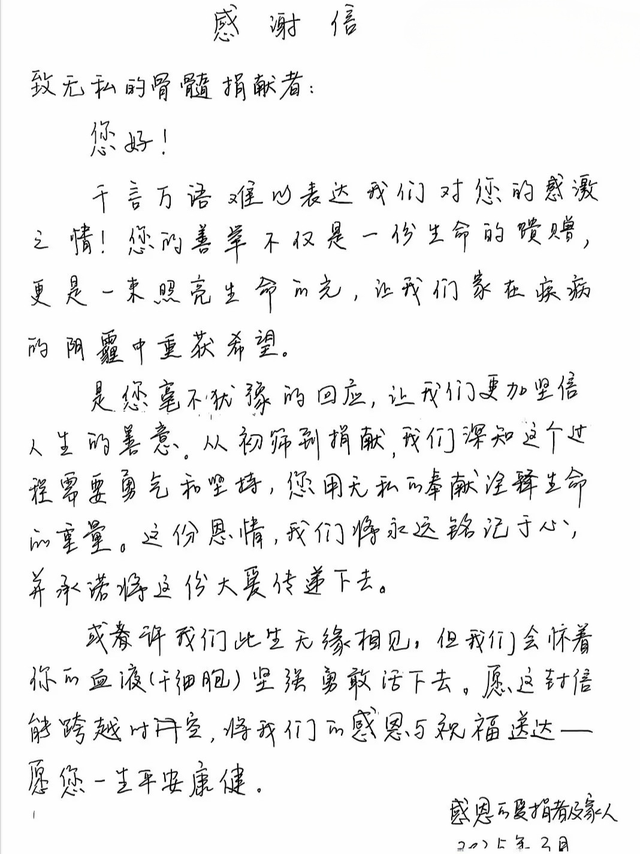 感谢信
致无私的骨髓捐献者：
您好！
千言万语难以表达我们对您的感激
之情！您的善举不仅是一份生命的馈赠，
更是一束照亮生命的光，让我们家在疾病
的阴霾中重获希望。
是您毫不犹豫的回应，让我们更加坚信
人生的善意。从初筛到捐献，我们深知这个过
程需要勇气和坚持，您用无私的奉献诠释生命
的重量。这份恩情，我们将永远铭记于心，
并承诺将这份大爱传递下去。
或者许我们此生无缘相见，但我们会怀着
你的血液(干细胞)坚强勇敢活下去。愿这封信
能跨越时空，将我们的感恩与祝福送达——
愿您一生平安康健。
感恩的受捐者及家人
2025年3月